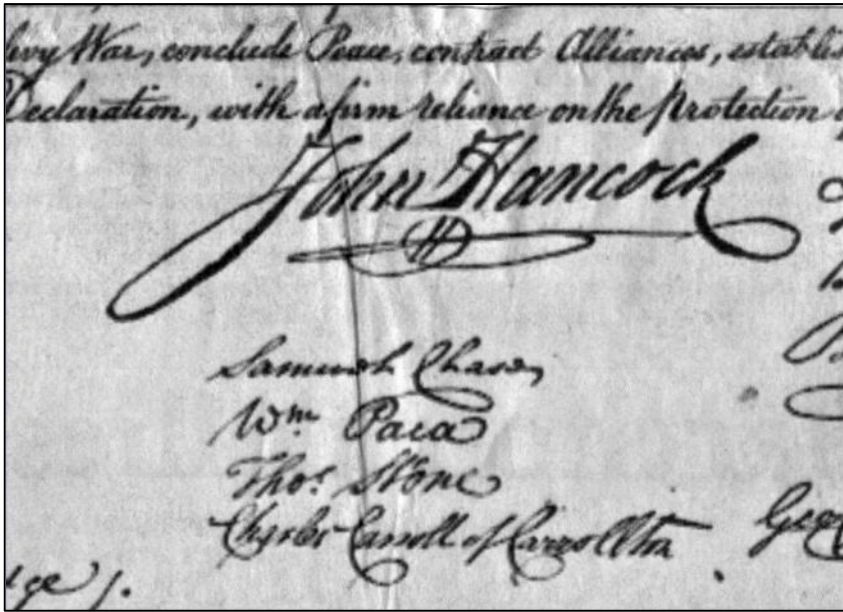 levy War, conclude Peace, contract Alliances, establis
Declaration, with a firm reliance on the protection
John Hancock
Samuel Chase
Wm Paca
Thos Stone
Charles Carroll of Carrollton
Geo